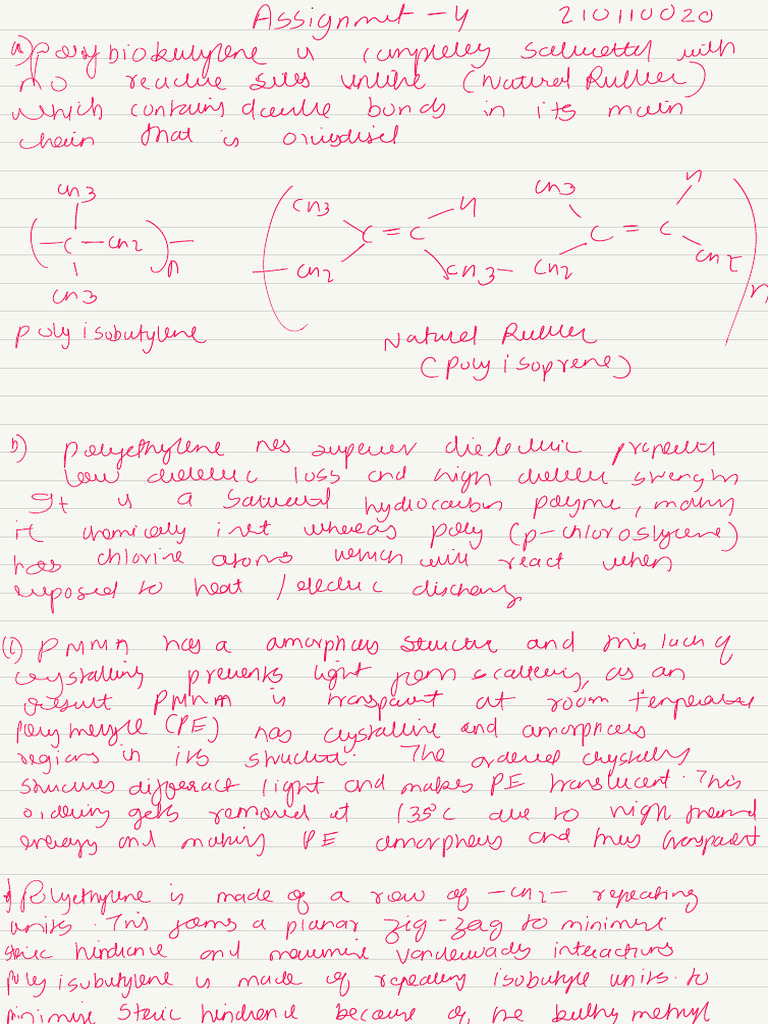 Assignmet - 4 210110020
a) polyisobutylene is completely saturated with
no reactive sites unlike (Natural Rubber)
which contains double bonds in its main
chain that is oxidised
CH3
( - C - CH2 ) - n
CH3
polyisobutylene
CH3 H CH3 H
C = C C = C
- CH2 CH3 - CH2 CH2
n
Naturel Rubber
(polyisoprene)
b) polyethylene has superior dielectric properties
low dielectric loss and high dielectric strength
It is a saturated hydrocarbon polyme, making
it chemically inet whereas poly (p-chlorostyrene)
has chlorine atoms which will react when
exposed to heat / electric discharg
(c) PMMA has a amorphous structure and this lack of
crystalling prevents light from scattering, as an
result PMMA is transparent at room temperature
Polymethyle (PE) has crystalline and amorphous
regions in its structure. The ordered crystalline
structures diffract light and makes PE translucent. This
ordering gets removed at 135°C due to high thermal
energy and making PE amorphous and thus transparent
d) Polyethylene is made of a row of -CH2- repeating
units. This forms a planar zig-zag to minimise
steric hindrance and maximise vanderwaals interactions
polyisobutylene is made of repeating isobutyle units. to
minimise steric hindrence because of the bulky methyl